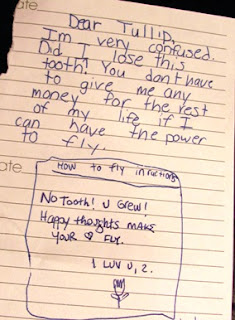 ate
Dear Tullip,
Im very confused.
Did I lose this
tooth? You don't have
to give me any
money for the rest
of my life if I
can have the power
to fly.
ate
How to fly infructions
No Tooth! U Grew!
Happy thoughts make
your ♡ FLY.
I LUV U, 2.